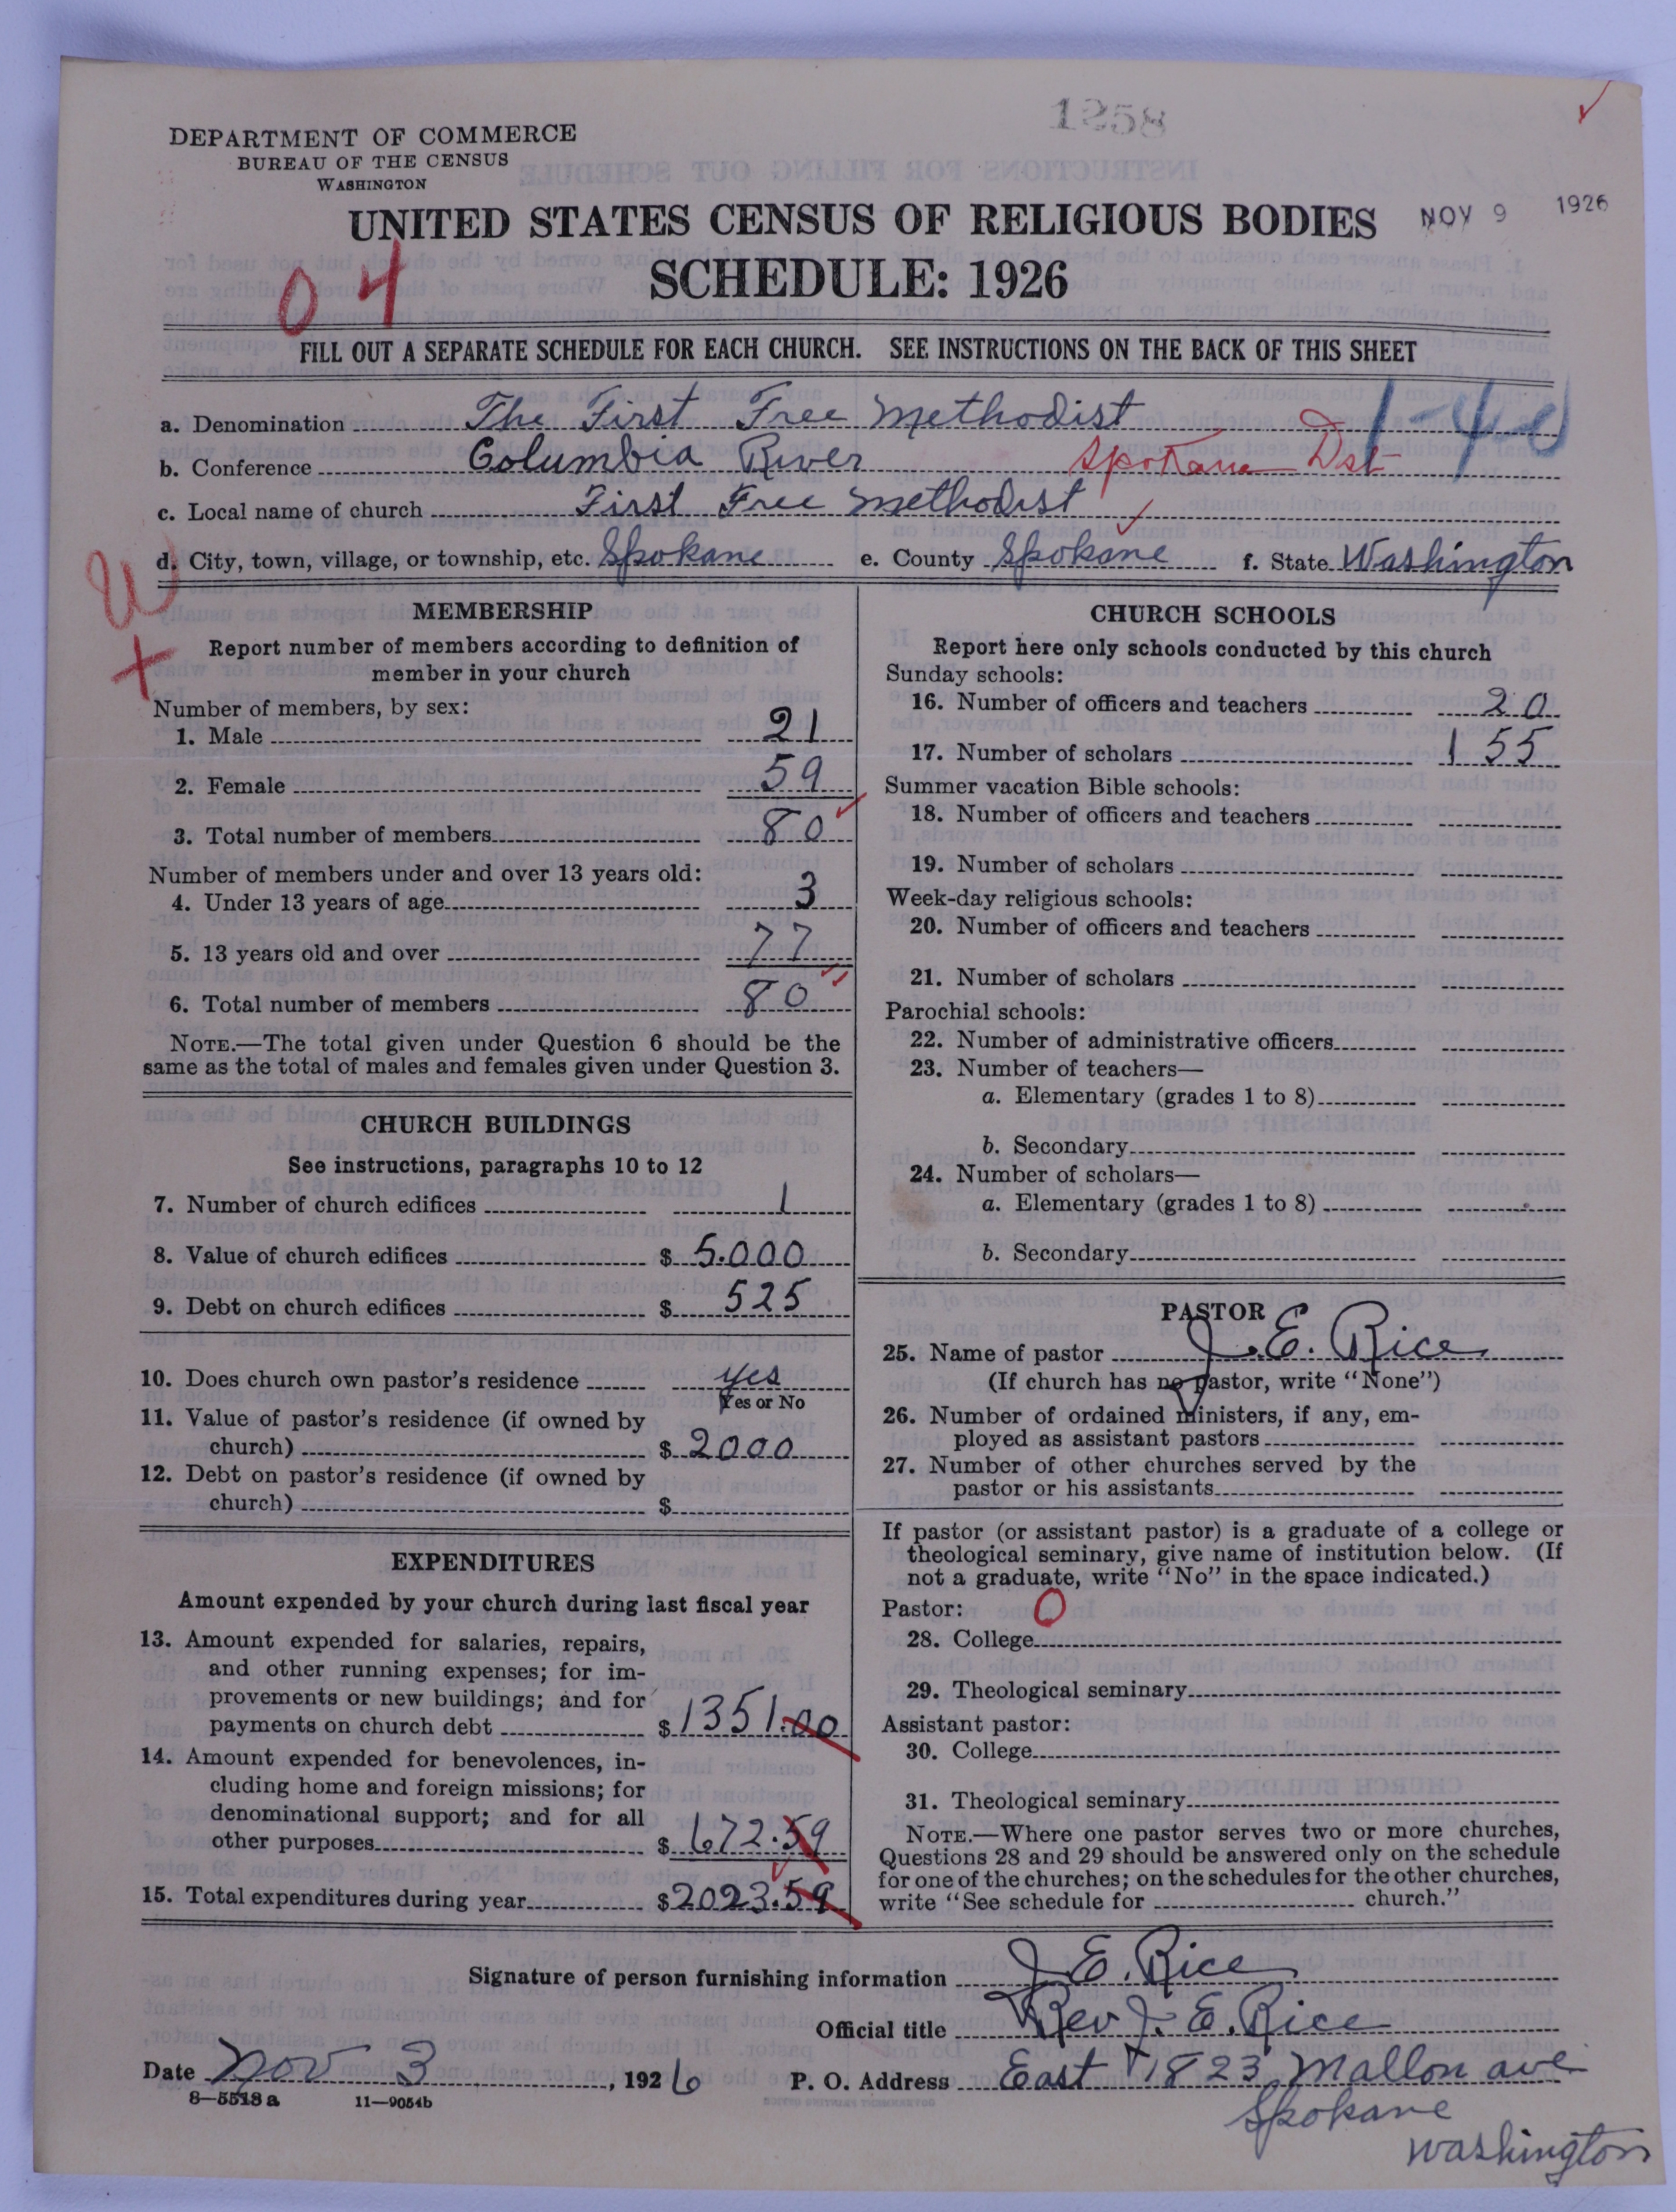 1258
DEPARTMENT OF COMMERCE
BUREAU OF THE CENSUS
WASHINGTON
UNITED STATES CENSUS OF RELIGIOUS BODIES
NOV 9 1926
SCHEDULE: 1926
04
FILL OUT A SEPARATE SCHEDULE FOR EACH CHURCH. SEE INSTRUCTIONS ON THE BACK OF THIS SHEET
a. Denomination The First Free Methodist
b. Conference Columbia River Spokane Dst
c. Local name of church First Free Methodist
d. City, town, village, or township, etc. Spokane e. County Spokane f. State Washington
MEMBERSHIP
Report number of members according to definition of
member in your church
Number of members, by sex:
1. Male 21
2. Female 59
3. Total number of members 80
Number of members under and over 13 years old:
4. Under 13 years of age 3
5. 13 years old and over 77
6. Total number of members 80
NOTE.—The total given under Question 6 should be the
same as the total of males and females given under Question 3.
CHURCH BUILDINGS
See instructions, paragraphs 10 to 12
7. Number of church edifices 1
8. Value of church edifices $ 5.000
9. Debt on church edifices $ 525
10. Does church own pastor's residence yes
Yes or No
11. Value of pastor's residence (if owned by
church) $ 2000
12. Debt on pastor's residence (if owned by
church) $
EXPENDITURES
Amount expended by your church during last fiscal year
13. Amount expended for salaries, repairs,
and other running expenses; for im-
provements or new buildings; and for
payments on church debt $ 1351.00
14. Amount expended for benevolences, in-
cluding home and foreign missions; for
denominational support; and for all
other purposes $ 672.59
15. Total expenditures during year $ 2023.59
CHURCH SCHOOLS
Report here only schools conducted by this church
Sunday schools:
16. Number of officers and teachers 20
17. Number of scholars 155
Summer vacation Bible schools:
18. Number of officers and teachers
19. Number of scholars
Week-day religious schools:
20. Number of officers and teachers
21. Number of scholars
Parochial schools:
22. Number of administrative officers
23. Number of teachers—
a. Elementary (grades 1 to 8)
b. Secondary
24. Number of scholars—
a. Elementary (grades 1 to 8)
b. Secondary
PASTOR
25. Name of pastor J. E. Rice
(If church has no pastor, write "None")
26. Number of ordained ministers, if any, em-
ployed as assistant pastors
27. Number of other churches served by the
pastor or his assistants
If pastor (or assistant pastor) is a graduate of a college or
theological seminary, give name of institution below. (If
not a graduate, write "No" in the space indicated.)
Pastor: 0
28. College
29. Theological seminary
Assistant pastor:
30. College
31. Theological seminary
NOTE.—Where one pastor serves two or more churches,
Questions 28 and 29 should be answered only on the schedule
for one of the churches; on the schedules for the other churches,
write "See schedule for church."
Signature of person furnishing information J. E. Rice
Official title Rev J. E. Rice
Date Nov 3, 1926 P. O. Address East 1823 Mallon ave
8—5513 a 11—9054b
Spokane
Washington